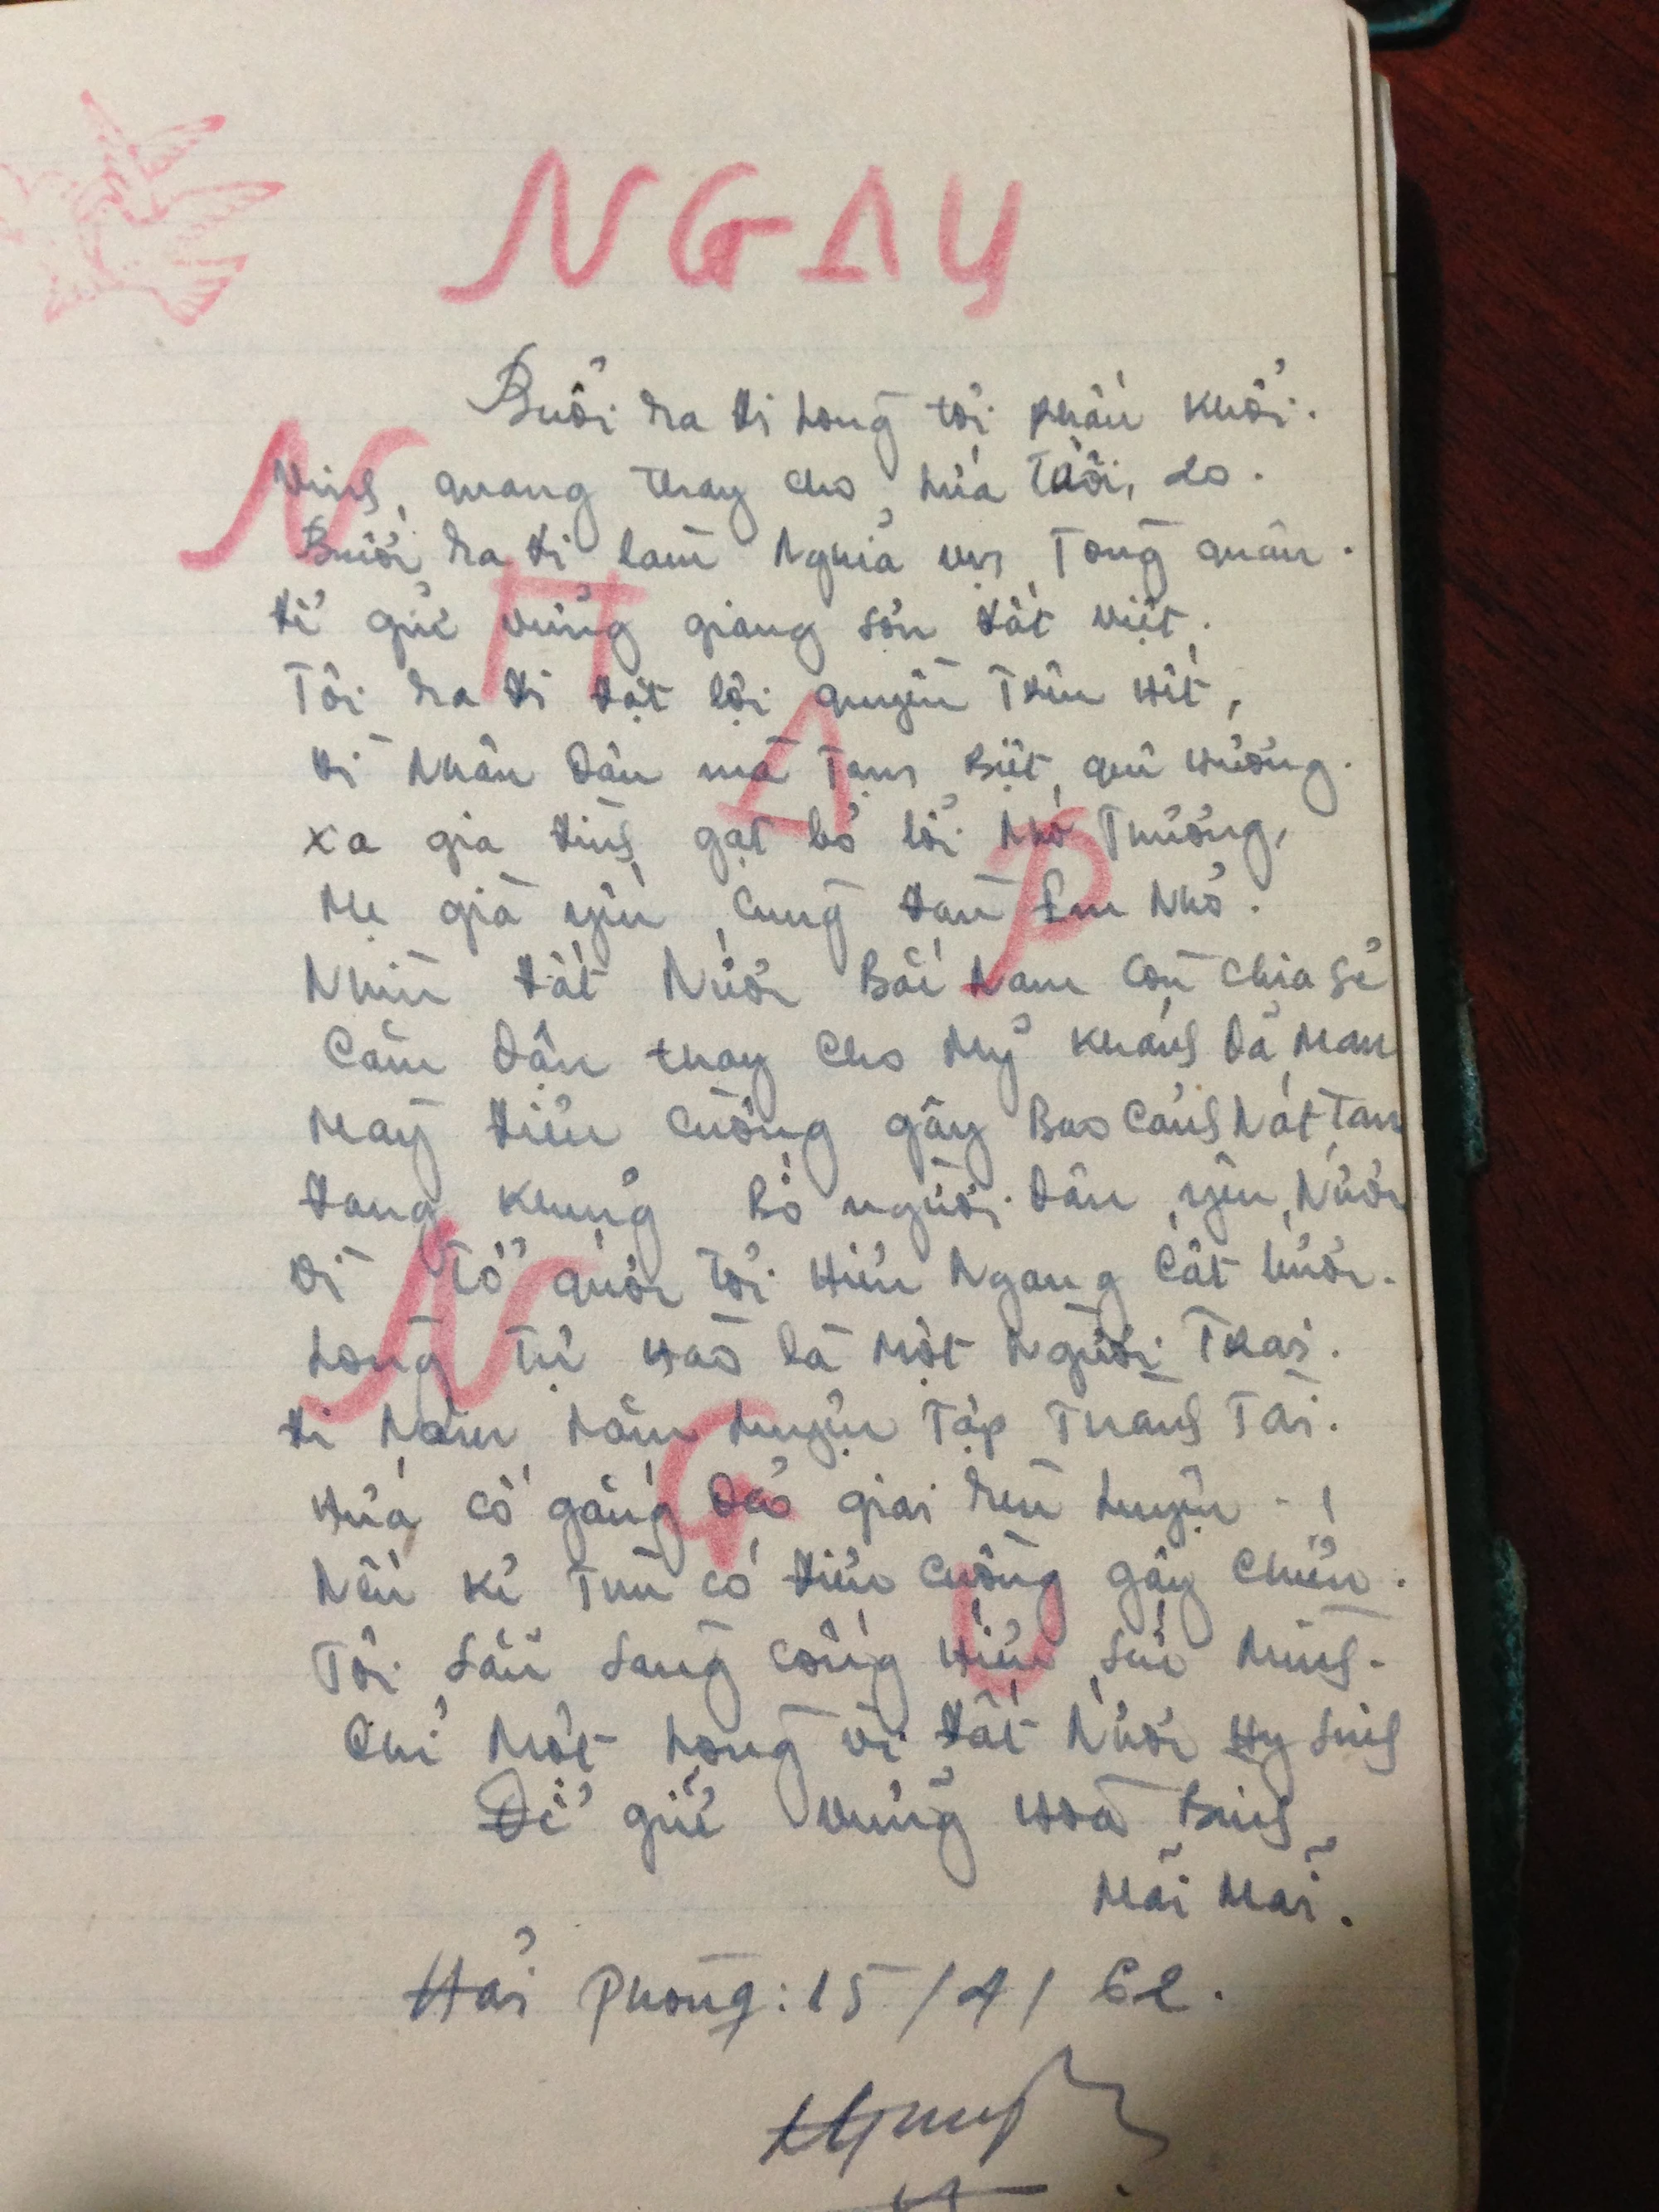 NGAY
Buổi ra đi long tôi phấn khởi.
Vinh quang thay cho lứa tuổi, 20.
Buổi ra đi lam Nghĩa vụ Tong quân.
để giữ vững giang sơn đất việt.
Tôi ra đi đặt lợi quyền Trên Hết,
Vi Nhân Dân mà Tạm Biệt quê Hương.
xa gia đinh gạt bỏ lời Nhớ Thương,
Mẹ già yêu cung đan Em Nhỏ.
Nhìn đất Nước Bắc Nam Còn chia sẻ
Căm Dận thay Cho Mỹ Khánh Dã Man
May điên Cuồng gây Bao Cảnh Nát Tan
đang Khủng Bố người Dân yêu Nước
Vì Tổ quốc Tôi Hiên Ngang Cất bước.
Long Tự Hào là Một Người Trai.
đi Năm Năm Luyện Tập Thành Tài.
Hứa cố gắng Dẻo giai rèn Luyện !
Nếu kẻ Thù có điên Cuồng gây Chiến.
Tôi Sẵn Sang Cống Hiến Sức Minh.
Chỉ Một Long vì đất Nước Hy Sinh
Để giữ Vững Hoà Binh
Mãi Mãi.
Hải Phong: 15/4/62.
N
H
A
P
N
G
U